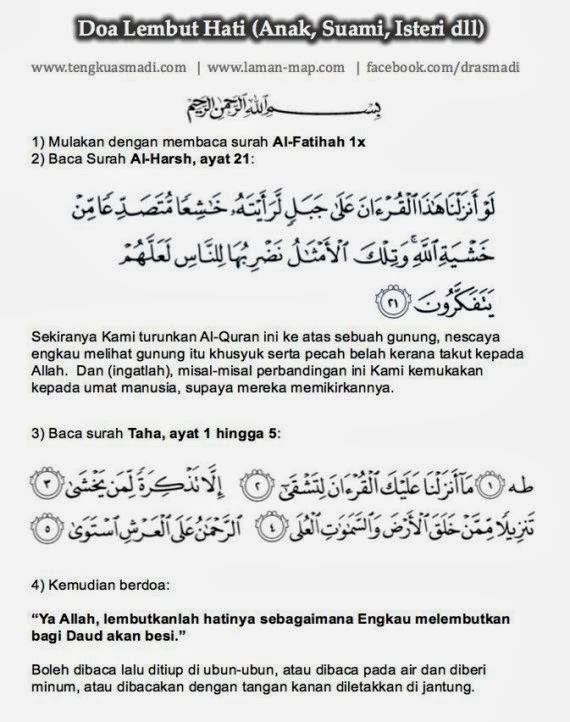 Doa Lembut Hati (Anak, Suami, Isteri dll)
www.tengkuasmadi.com | www.laman-map.com | facebook.com/drasmadi
بِسْمِ اللَّهِ الرَّحْمَٰنِ الرَّحِيمِ
1) Mulakan dengan membaca surah Al-Fatihah 1x
2) Baca Surah Al-Harsh, ayat 21:
لَوْ أَنزَلْنَا هَٰذَا الْقُرْءَانَ عَلَىٰ جَبَلٍ لَّرَأَيْتَهُۥ خَٰشِعًا مُّتَصَدِّعًا مِّنْ
خَشْيَةِ اللَّهِ ۚ وَتِلْكَ الْأَمْثَٰلُ نَضْرِبُهَا لِلنَّاسِ لَعَلَّهُمْ
يَتَفَكَّرُونَ ٢١
Sekiranya Kami turunkan Al-Quran ini ke atas sebuah gunung, nescaya
engkau melihat gunung itu khusyuk serta pecah belah kerana takut kepada
Allah. Dan (ingatlah), misal-misal perbandingan ini Kami kemukakan
kepada umat manusia, supaya mereka memikirkannya.
3) Baca surah Taha, ayat 1 hingga 5:
طه ١ مَا أَنزَلْنَا عَلَيْكَ الْقُرْءَانَ لِتَشْقَىٰ ٢ إِلَّا تَذْكِرَةً لِّمَن يَخْشَىٰ ٣
تَنزِيلًا مِّمَّنْ خَلَقَ الْأَرْضَ وَالسَّمَٰوَٰتِ الْعُلَى ٤ الرَّحْمَٰنُ عَلَى الْعَرْشِ اسْتَوَىٰ ٥
4) Kemudian berdoa:
“Ya Allah, lembutkanlah hatinya sebagaimana Engkau melembutkan
bagi Daud akan besi.”
Boleh dibaca lalu ditiup di ubun-ubun, atau dibaca pada air dan diberi
minum, atau dibacakan dengan tangan kanan diletakkan di jantung.